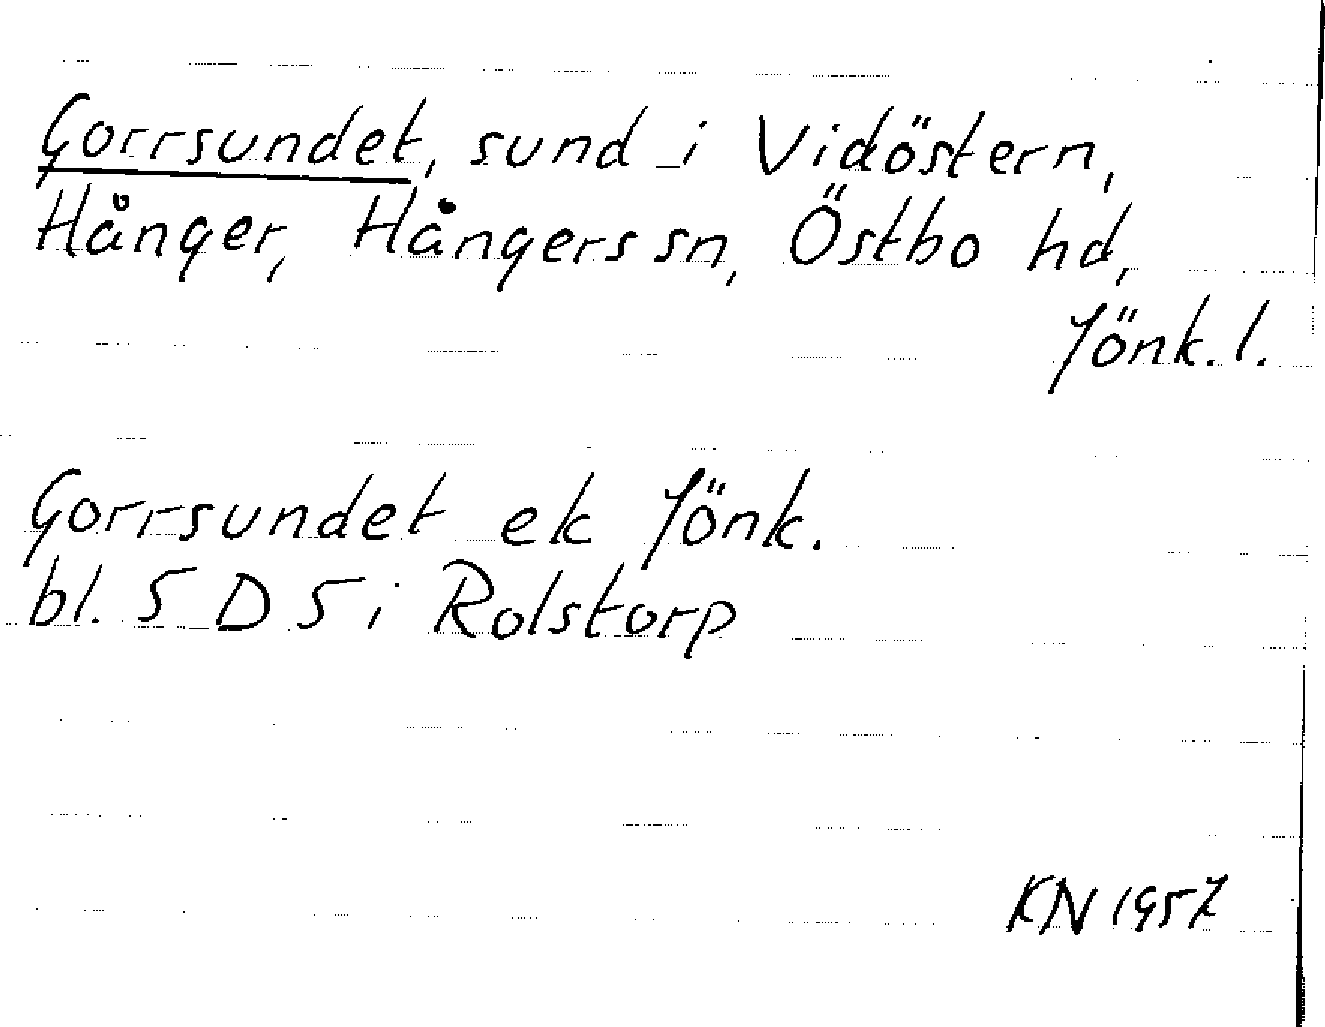 Gorrsundet, sund i Vidöstern,
Hånger, Hångers sn, Östbo hd,
Jönk. l.
Gorrsundet ek Jönk.
bl. 5 D 5 i Rolstorp
KN 1957